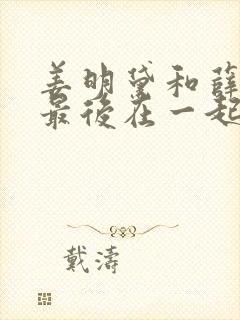 姜明黛和薛
最後在一起
戴濤